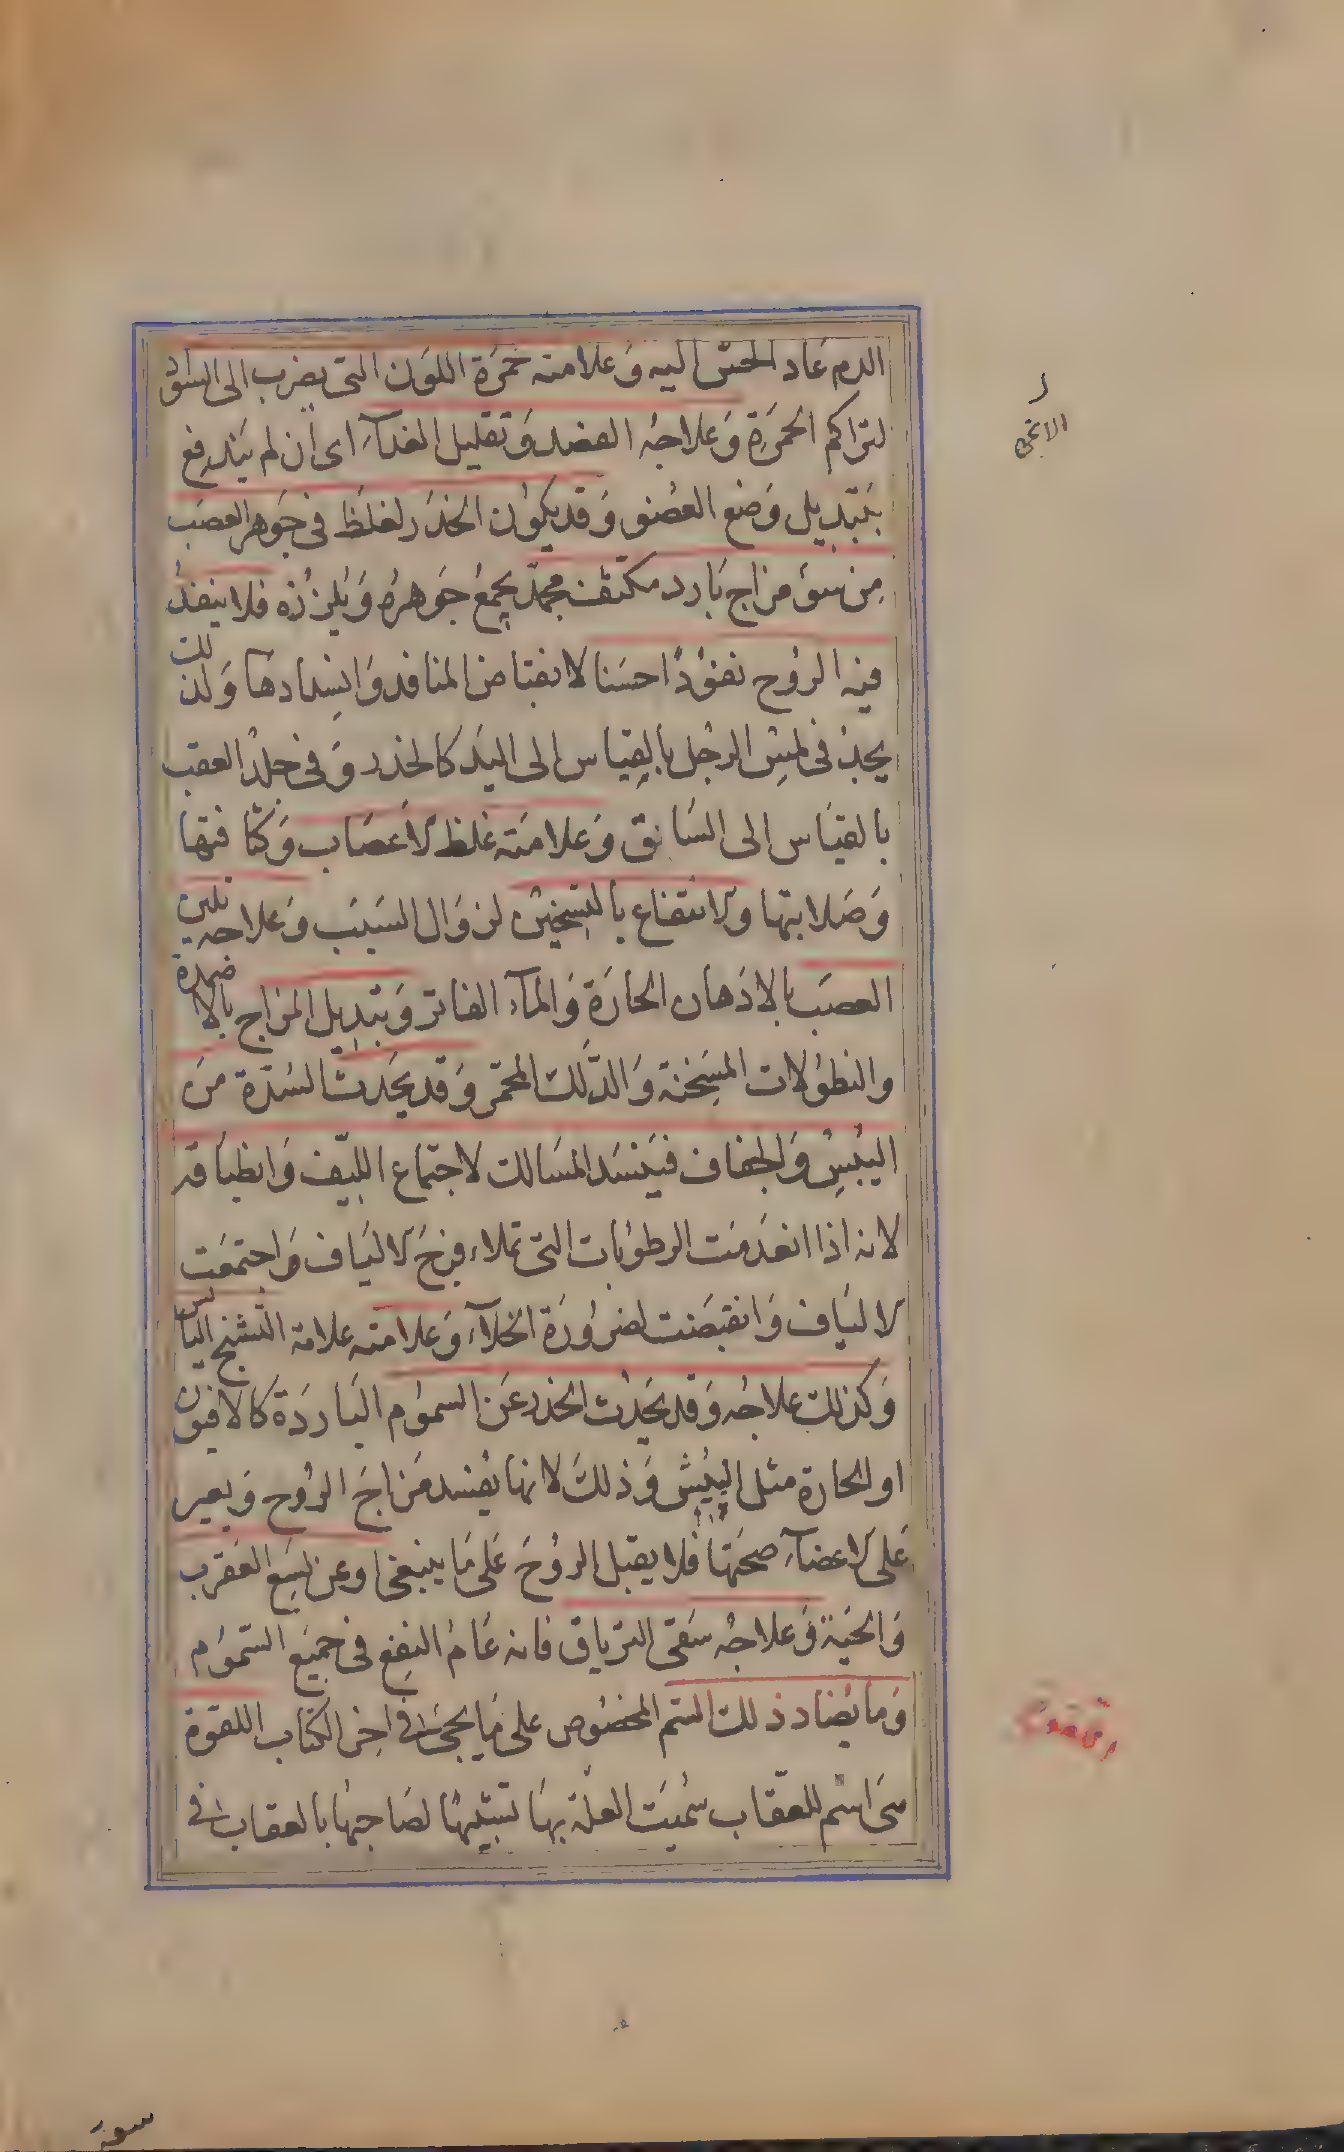 الدم عاد الحسّ اليه وَعلامته حُمرَة اللوَن التى يضرب الى السواد
لتراكم الحمرَةِ وَعلاجُه الفصد وَتقليل الغذآءِ اى ان لم يَندفع
بتبديل وَضع العضو وَقد يكوُن الخدَر لغلظَ فى جَوهر العصَب
مِن سوء مزاج بَارد مكثف مجمدّ يجمعُ جَوهرهُ وَيلززه فلا ينفذُ
فيه الروُح نفوُذًا حسَنا لانقباض المنافذ وَانسِدادهَا وَلذلك
يجدُ فى لمسِ الرجُل بالقِياس الى اليَد كالخدر وَفى جلدُ العقب
بالقيَاس الى السَاق وَعلامَته غلظ الاَعصَاب وَكثافتها
وَصَلابتها والانتفاع بالتسخين لزوَال السَبَب وَعلاجه تليين
العصَب بالادَهان الحارَةِ وَالمآء الفاتر وَتبديل المزاج بالاضمدة
والنطوُلات المسَخنة وَالدَّلك المحمّر وَقد يحَدث السُدّة منَ
اليُبسِ وَالجفاف فيَنسَد المسَالك لاجتماع اللّيف وَانطباقه
لانه اذا انعدَمَت الرطوُبات التى تملاء فرَجَ الاليَاف وَاجتمعَت
الاليَاف وَانقبَضَت لضروُرَة الخلآء وَعلامته علامة التّشنج اليابس
وَكذلك علاجُه وَقد يحَدُث الخدر عَن السموُم البَاردَة كالافيون
او الحارة مثل البيُش وَذلكَ لانها يفُسد مَزاجَ الروُح وَيعير
عَلىَ الاعضآءِ صحتهَا فلا يقبل الروُحَ عَلى مَا ينبغى وعن لسَع العَقرب
وَالحيَة وَعلاجُه سَقى الترياق فانه عَامُ النفع فى جميَع السّموُم
وَما يضُاد ذلك السّم المخصُوص على مَا يجئ فى اخِر الكتاب اللقوة
هىَ اسْم للعقّاب سُميَت العلّة بهَا تشبيهًا لصَاحبهَا بالعقاب فى